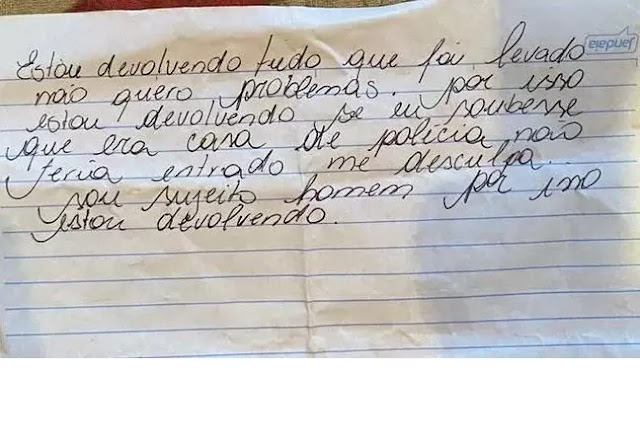 Jandaia
Estou devolvendo tudo que foi levado
não quero problemas. por isso
estou devolvendo se eu soubesse
que era casa de polícia não
teria entrado me desculpa...
sou sujeito homem por isso
estou devolvendo.